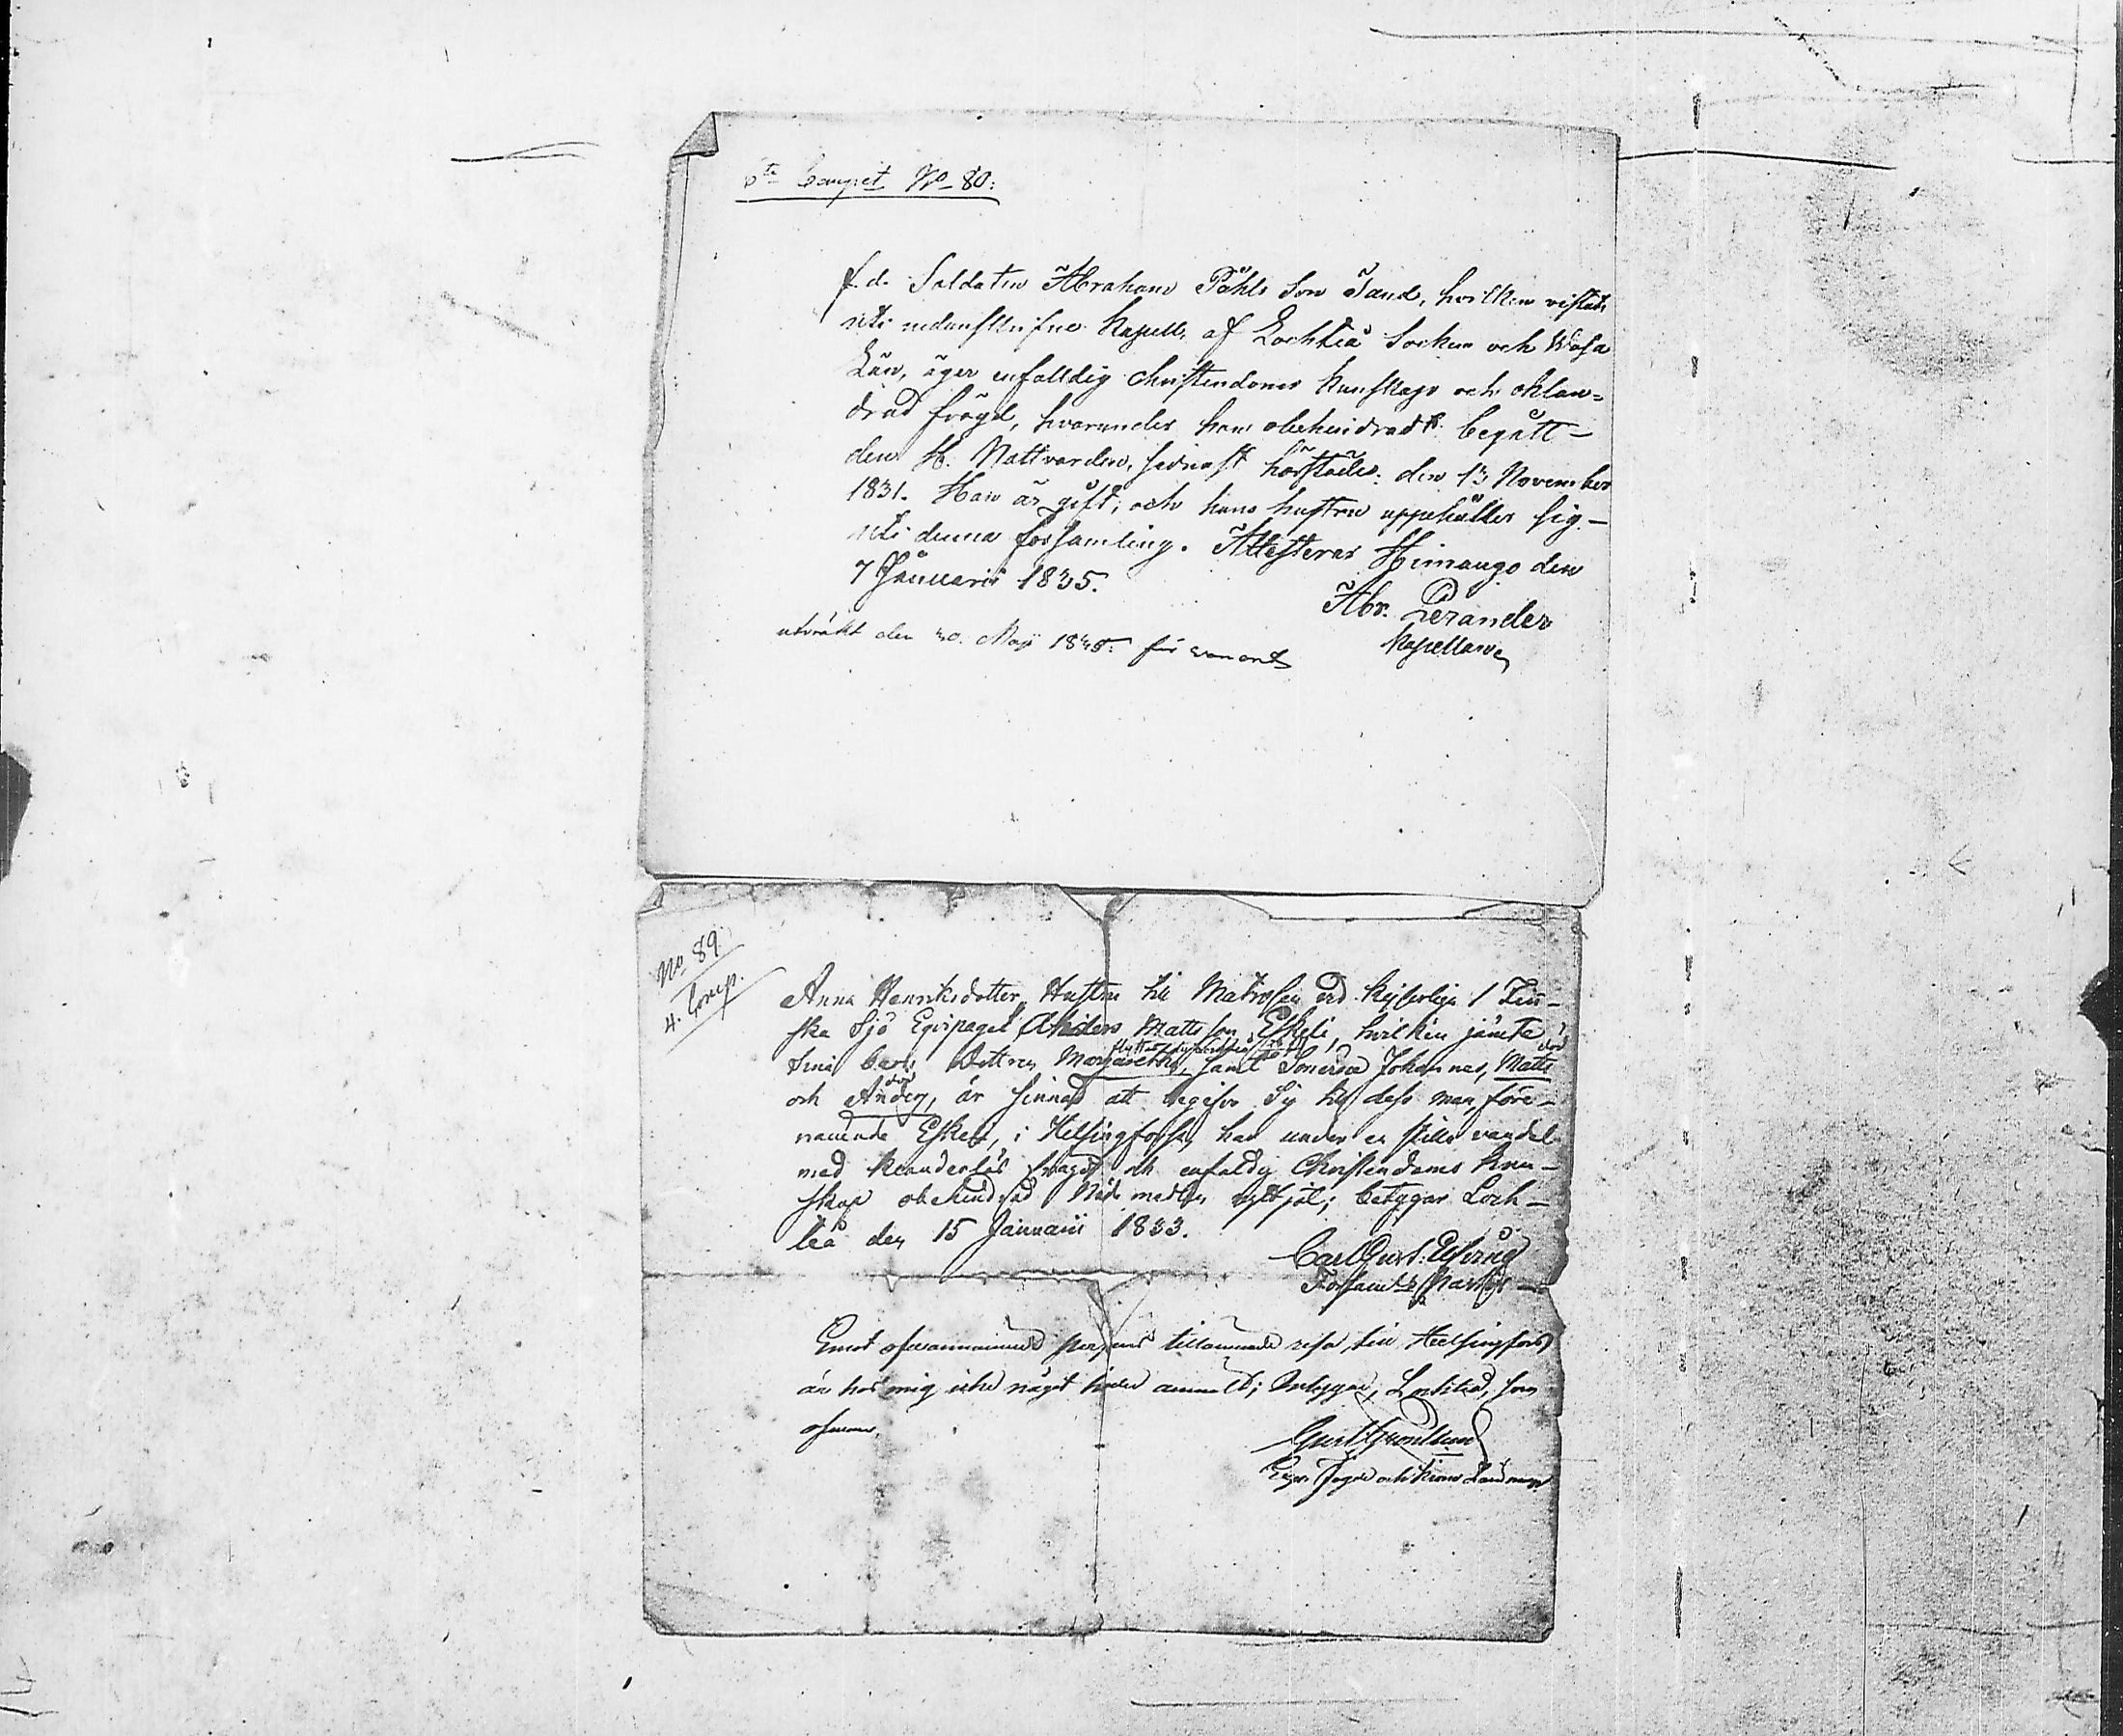 6te Compniet No 80:
f. d. Soldaten Abraham Påhls Son Sand, hvilken vistats
uti nedanskrifne Kapell af Lochteå Socken och Wasa
Län, äger enfalldig christendoms kunskap och oklan=
drad frägd, hvarunder han obehindradt begått
den H. Nattvarden, sednast härstädes den 13 November
1831. Han är gift, och hans hustru uppehåller sig
uti denna församling. Attesteras Himango den
7 Januarii 1835.
Abr. Perander
Kapellan
uträkt den 20. Maji 1835. för
No 89
4. Comp.
Anna Henriksdotter, Hustru till Matrosen vid Kejserliga 1 Fin-
ska Sjö Equipaget Anders Mattsson Eskeli, hvilken jämte
död
sina barn Dottren Margaretha, samt Sönerna Johannes, Matts
död
och Anders, är sinnad att begifva sig till dess man, före-
nämnde Eskeli, i Helsingfors, har under en stilla vandel
med klanderlös frägd och enfaldig Christendoms kun-
skap obehindrad Nådemedlen nyttjat; betygar Loch-
teå den 15 Januarii 1833.
Carl Gust.
Emot ofvannämnde persons tillämnade resa till Helsingfors
är hos mig icke något hinder anmält; betygar, Lochteå, som
ofvan.
Gust. Grönlund
Länsman